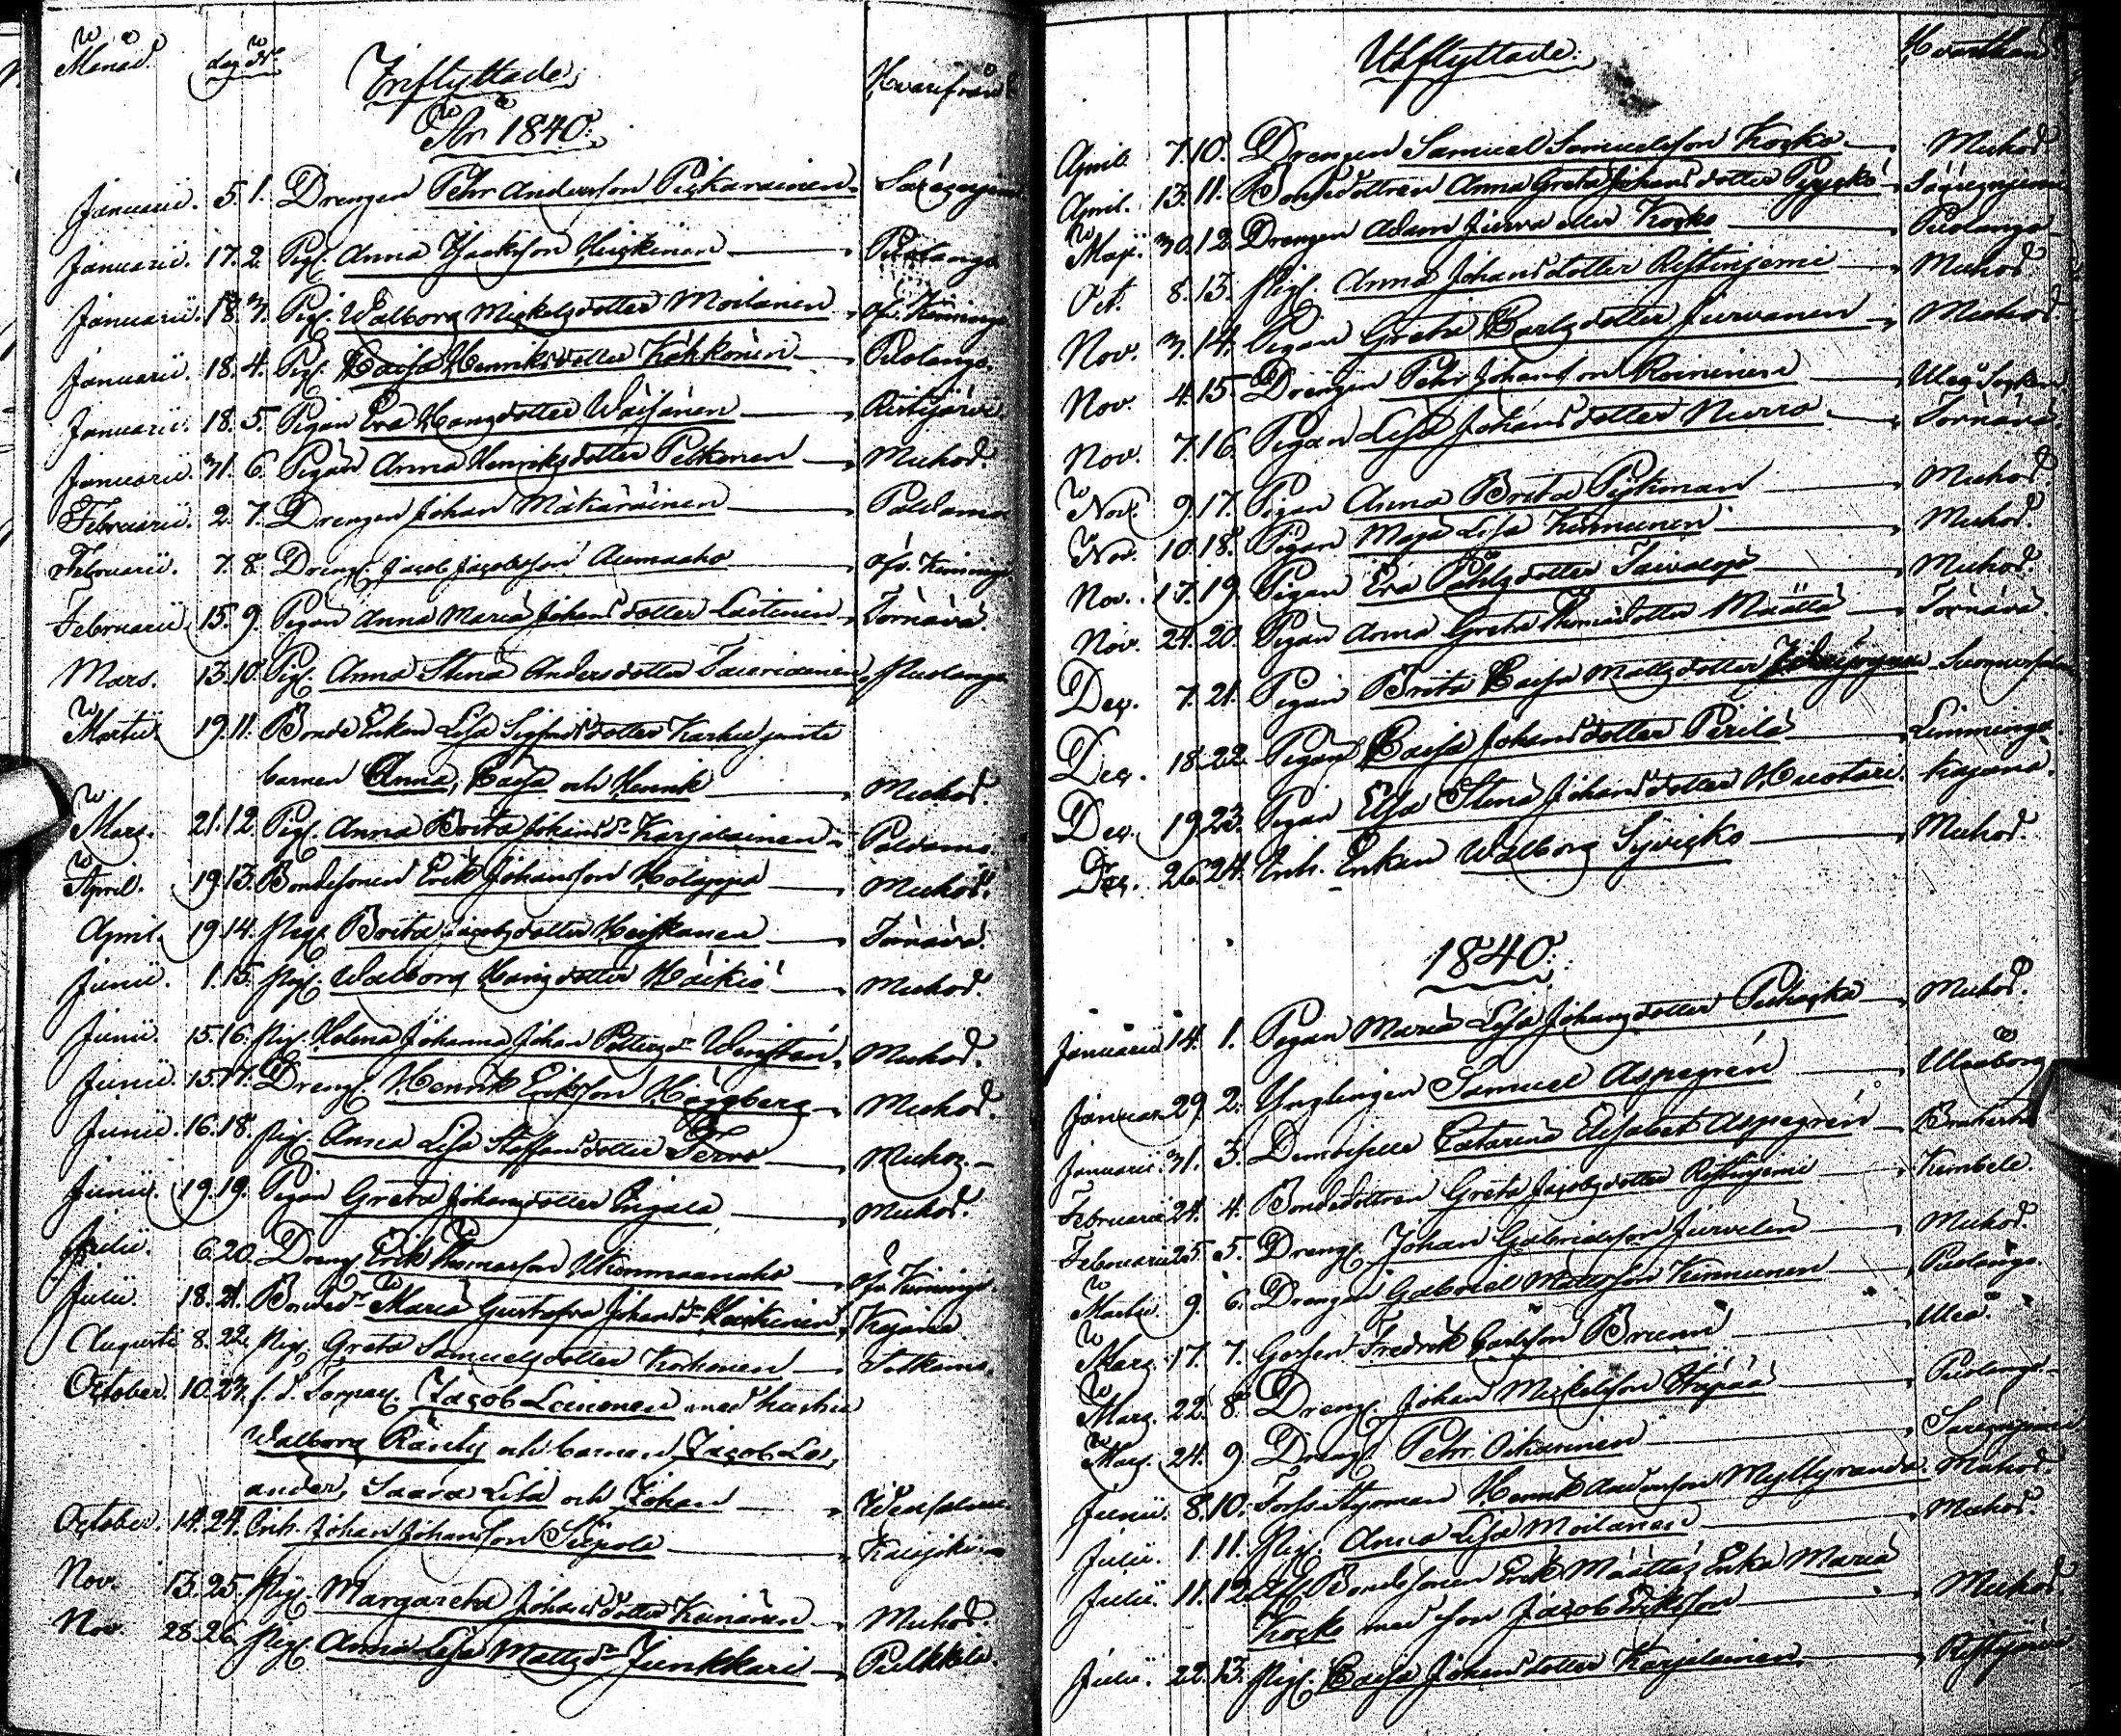 Månad. dag. Nr. Inflyttade: Hvarifrån
År 1840:
Januarii. 5. 1. Drengen Pehr Andersson Säräisjemi
Januarii. 17. 2. Pig. Anna Isaksson Heiskinen Pudlango
Januarii. 18. 3. Pig. Walborg Mickelsdotter Moilanen öfv. Kiminge
Januarii. 18. 4. Pig. Caisa Henriksdotter Kähkönen Pudlango.
Januarii. 18. 5. Pigan Eva Hansdotter Wäisänen Ristijärvi
Januarii. 31. 6. Pigan Anna Henriksdotter Pelkonen Muhos.
Februarii. 2. 7. Drengen Johan Mäkäräinen Paldamo
Februarii. 7. 8. Dreng. Jacob Jacobsson Aumaaho öfv. Kiminge
Februarii. 15. 9. Pigan Anna Maria Johansdotter Laitinen Tornävä.
Mars. 13. 10. Pig. Anna Stina Andersdotter Tauriainen Pudlango
Martii 19. 11. Bonde Enkan Lisa Sigfridsdotter Karhu jemte
barnen Anna, Caisa och Henrik Muhos.
Mars. 21. 12. Pig. Anna Brita Johansdr Karjalainen Paldamo.
April. 19. 13. Bondesonen Erik Johansson Holappa Muhos.
April. 19. 14. Pig. Brita Jacobsdotter Heiskanen Tornävä.
Junii. 1. 15. Pig. Walborg Hansdotter Häikiö Muhos.
Junii. 15. 16. Pig. Helena Johanna Johan Pettersdr Muhos.
Junii. 15. 17. Dreng. Henrik Eriksson Högberg Muhos.
Junii. 16. 18. Pig. Anna Lisa Staffansdotter Tervo Muhos.
Junii. 19. 19. Pigan Greta Johansdotter Muhos.
Julii. 6. 20. Dreng Erik Thomasson Ukonmaanaho öfv. Kiminge.
Julii. 18. 21. Bondedr Maria Gustafva Johansdr Kajana.
Augusti 8. 22. Pig. Greta Samuelsdotter Korhonen Sotkamo.
October. 10. 23. f. d. Torpar. Jacob Leinonen med hustru
Walborg Ränty och barnen Jacob Le-
ander, Saara Lisa och Johan Idensalmi
October. 14. 24. Inh. Johan Johansson Siipola Kalajoki
Nov. 13. 25. Pig. Margareta Johansdotter Keinänen Muhos.
Nov. 28. 26. Pig. Anna Lisa Mattsdr Junkkari Pulkkila.
Utflyttade: Hvarthän
April 7. 10. Drengen Samuel Samuelsson Kocko Muhos.
April. 13. 11. Bondedottren Anna Greta Johansdotter Säräisjemi
Maji. 30. 12. Drengen Adam Jurva eller Kocko Pudlango
Oct. 8. 13. Pig. Anna Johansdotter Ristinjemi Muhos
Nov. 3. 14. Pigan Greta Carlsdotter Jurvanen Muhos
Nov. 4. 15. Drengen Pehr Johansson Roininen Uleå Socken
Nov. 7. 16. Pigan Lisa Johansdotter Tornävä.
Nov. 9. 17. Pigan Anna Brita Muhos.
Nov. 10. 18. Pigan Maja Lisa Kinnunen Muhos.
Nov. 17. 19. Pigan Eva Pehrsdotter Muhos.
Nov. 24. 20. Pigan Anna Greta Thomasdotter Määttä Tornävä.
Dec. 7. 21. Pigan Brita Caisa Mattsdotter
Dec. 18. 22. Pigan Caisa Johansdotter Pirilä Limmingo
Dec. 19. 23. Pigan Elsa Stina Johansdotter Huotari Kajana.
Dec. 26. 24. Inh. Enkan Walborg Muhos.
1840:
Januarii 14. 1. Pigan Maria Lisa Johansdotter Puhacka Muhos.
Januar. 29. 2. Ynglingen Samuel Aspegrén Uleåborg
Januarii. 31. 3. Demoiselle Catarina Elisabet Aspegrén Brahestad
Februarii 24. 4. Bondedottren Greta Jacobsdotter Ristinjemi Kembele.
Februarii 25. 5. Dreng. Johan Gabrielsson Jurvelin Muhos.
Martii. 9. 6. Drengen Gabriel Matsson Kinnunen Pudlango.
Mars. 17. 7. Gossen Fredrik Carlsson Brunn Uleå.
Mars. 22. 8. Dreng. Johan Mickelsson Pudlango
Mars. 24. 9. Dreng. Pehr Oikarinen Säräisjemi
Junii. 8. 10. Henrik Andersson Myllyranda. Muhos.
Julii. 1. 11. Pig. Anna Lisa Moilanen Muhos.
Julii. 11. 12. Afl. Bondesonen Erik Määttäs Enka Maria
Kocko med son Jacob Eriksson Muhos
Julii. 22. 13. Pig. Caisa Johansdotter Karjalainen Ristijärvi